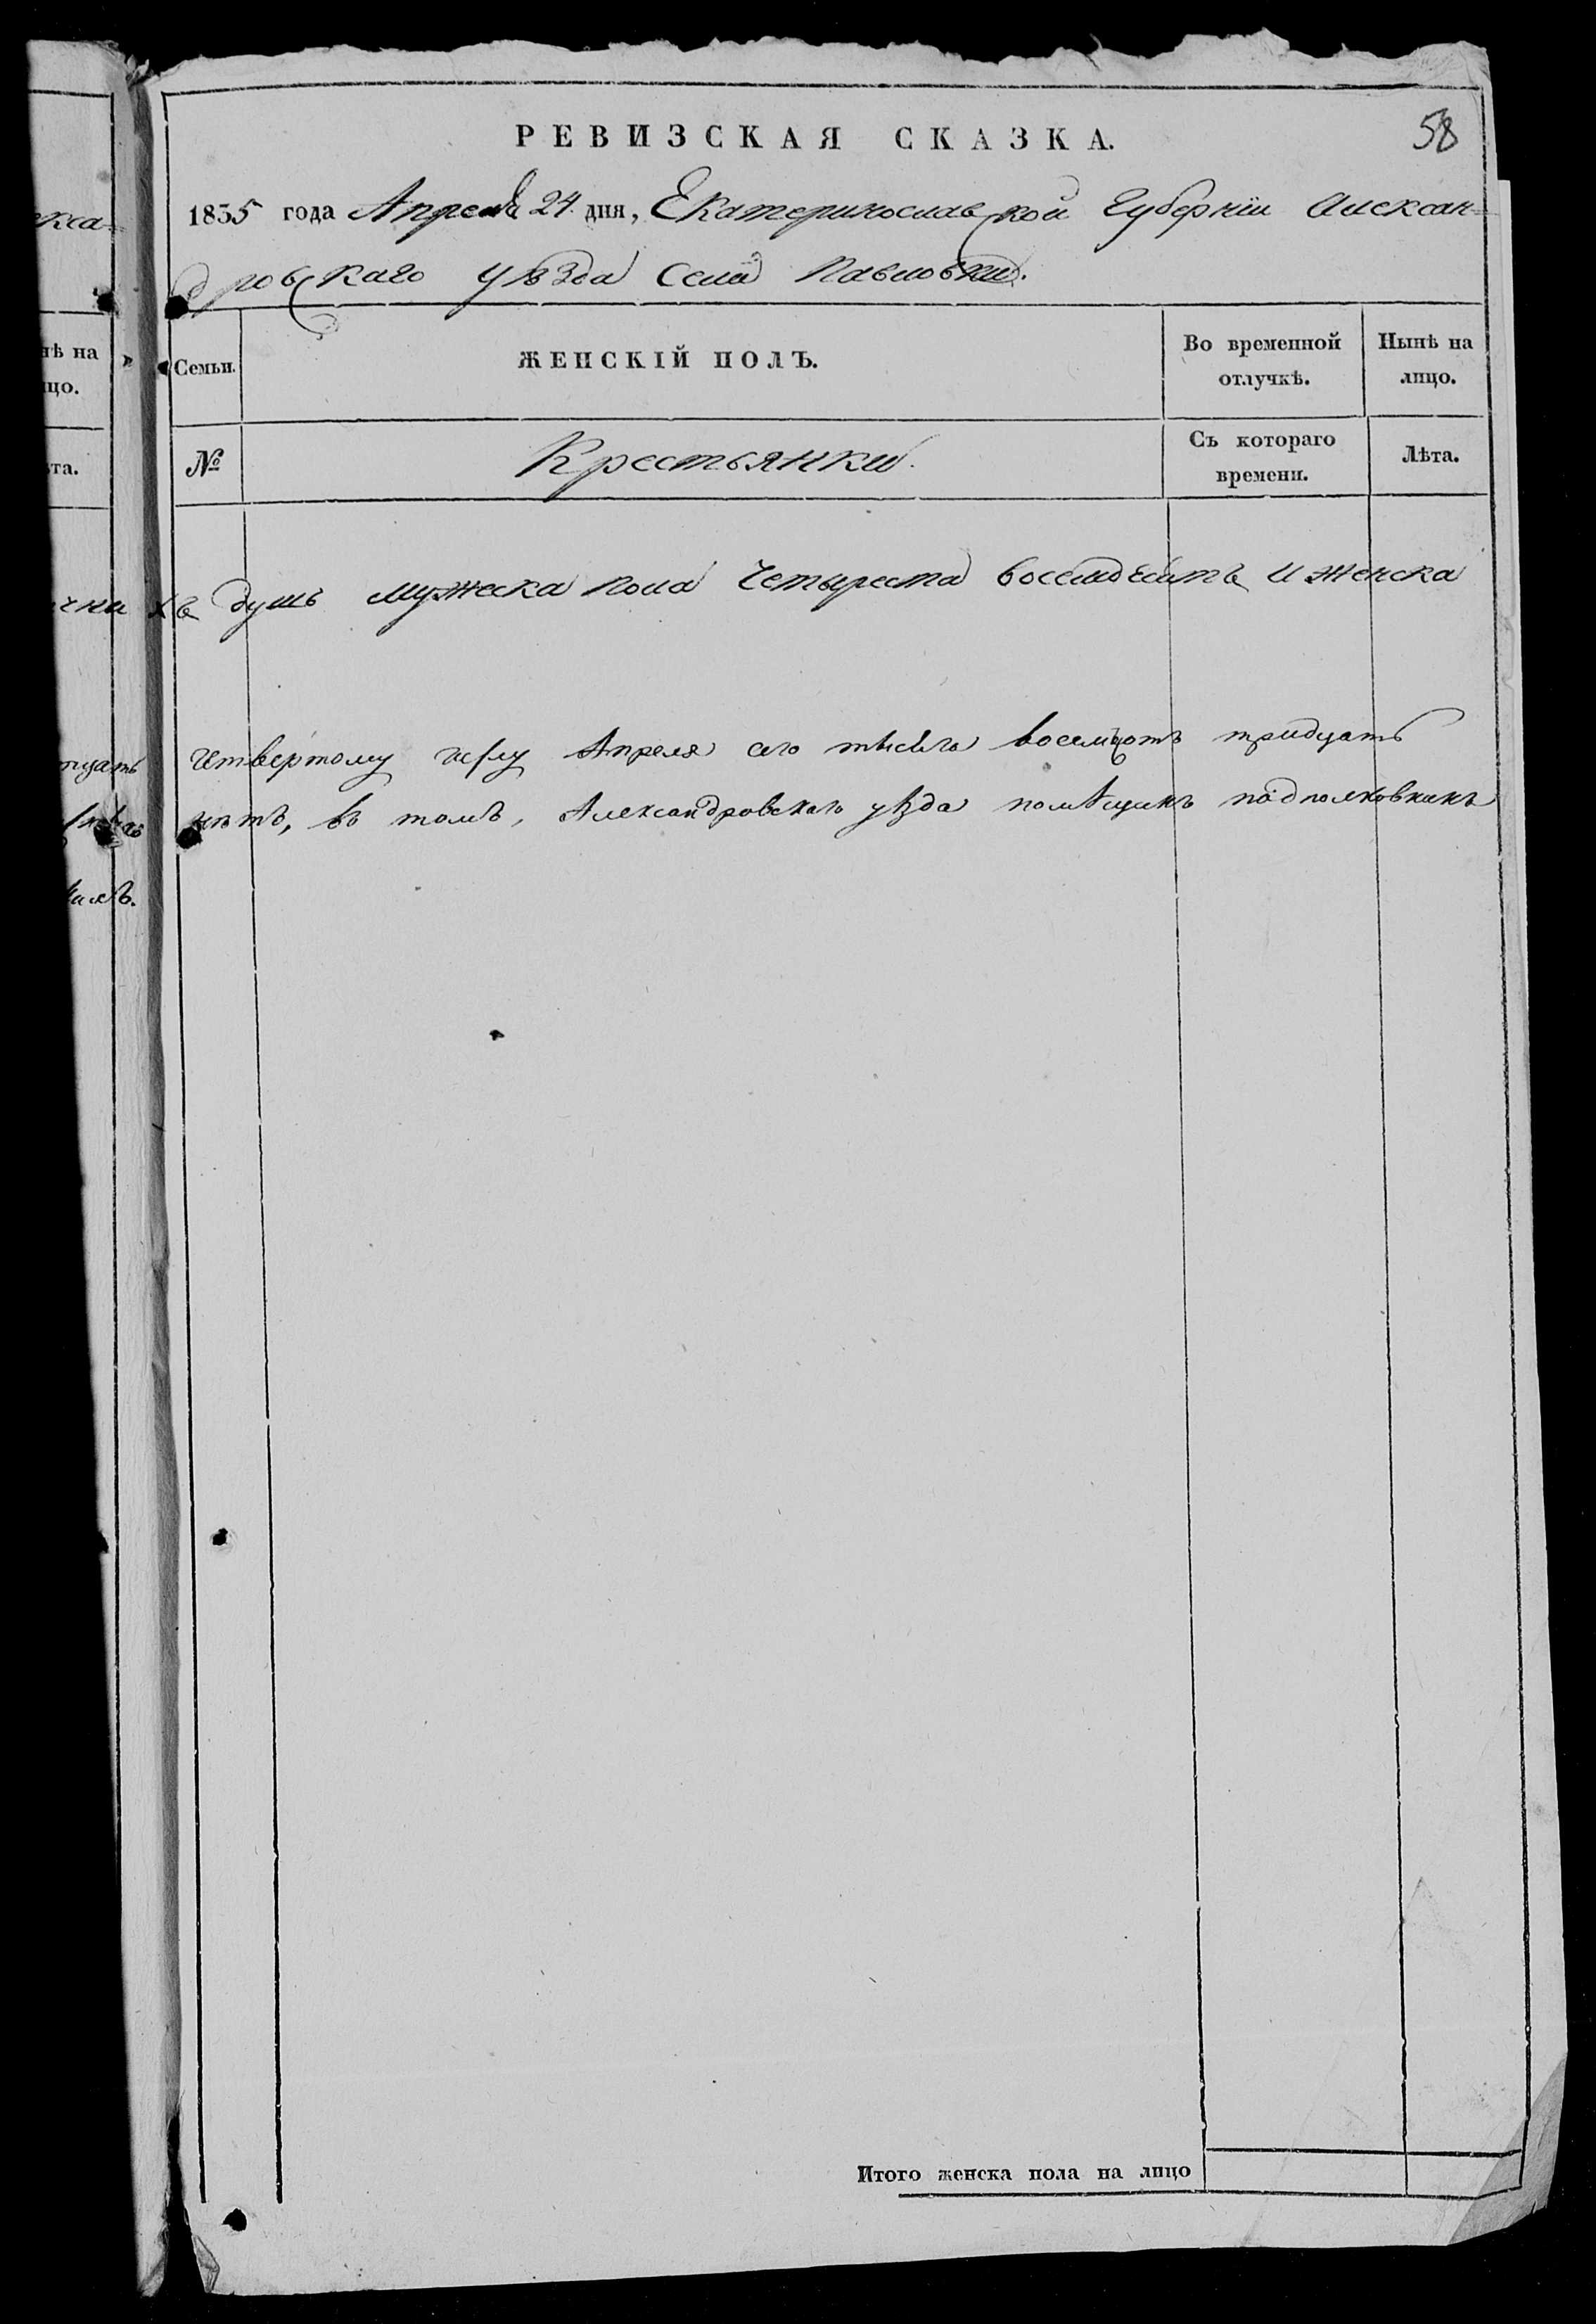 58
РЕВИЗСКАЯ СКАЗКА.
1835 года Апреля 24 дня, Екатеринославской Губерніи Алексан=
дровскаго уѣзда Села Павловки.
Семьи.
ЖЕНСКІЙ ПОЛЪ.
Во временной отлучкѣ.
Нынѣ на лицо.
№
Крестьянки.
Съ котораго времени.
Лѣта.
душъ мужеска пола четыреста восемдесятъ и женска
четвертому числу Апреля сего тысяча восемьсотъ тридцать
въ томъ, Александровскаго уѣзда помѣщикъ подполковникъ
Итого женска пола на лицо